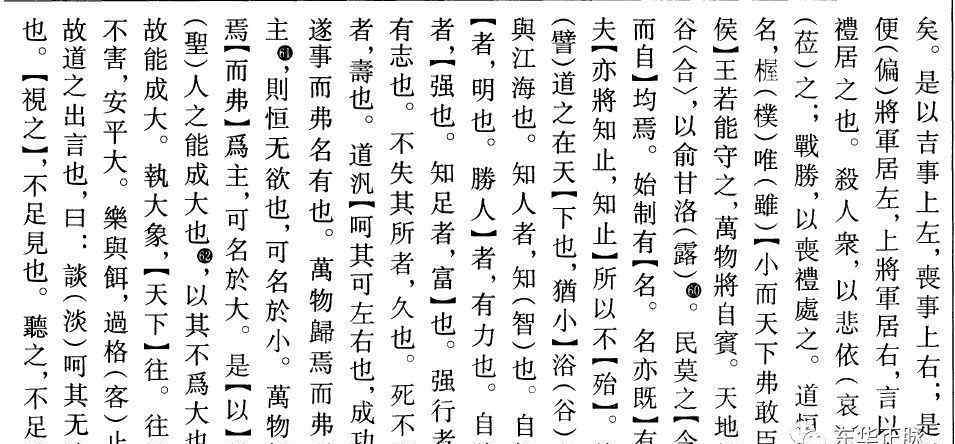 矣。是以吉事上左，喪事上右；是
便（偏）將軍居左，上將軍居右，言以
禮居之也。殺人衆，以悲依（哀
（莅）之；戰勝，以喪禮處之。道恒
名，楃（樸）唯（雖）【小而天下弗敢臣
侯】王若能守之，萬物將自賓。天地
谷〈合〉，以俞甘洛（露）60。民莫之【令
而自】均焉。始制有【名。名亦既】有
夫【亦將知止，知止】所以不【殆】。
（譬）道之在天【下也，猶小】浴（谷）
與江海也。知人者，知（智）也。自
【者，明也。勝人】者，有力也。自
者，【强也。知足者，富】也。强行者
有志也。不失其所者，久也。死不
者，壽也。道汎【呵其可左右也，成功
遂事而弗名有也。萬物歸焉而弗
主61，則恒无欲也，可名於小。萬物
焉【而弗】爲主，可名於大。是【以】
（聖）人之能成大也62，以其不爲大也
故能成大。執大象，【天下】往。往
不害，安平大。樂與餌，過格（客）止
故道之出言也，曰：談（淡）呵其无
也。【視之】，不足見也。聽之，不足